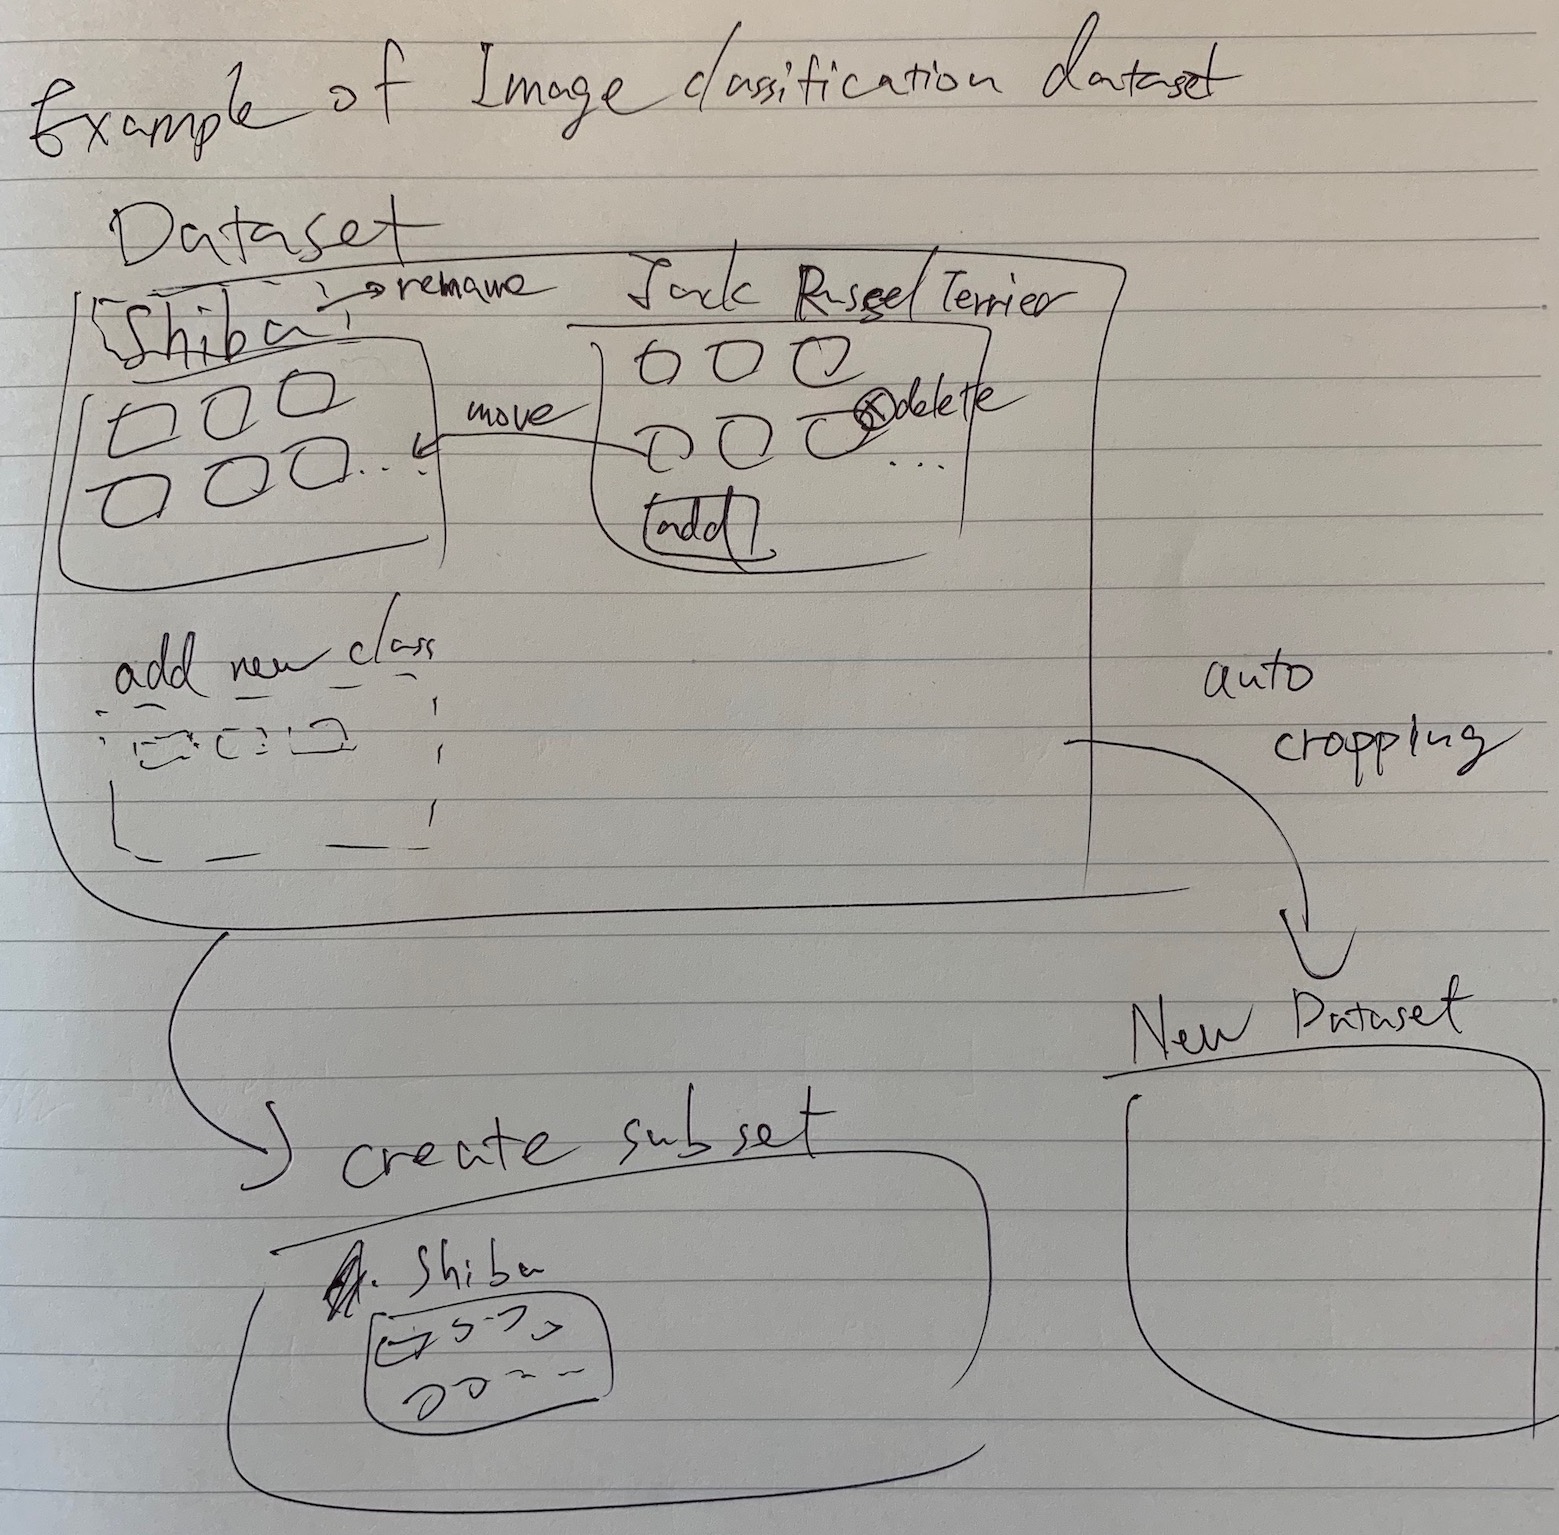 Example of Image classification dataset
Dataset
Shiba → rename
Jack Russel Terrier
move
delete
...
...
add
add new class
auto
cropping
New Dataset
create subset
Shiba